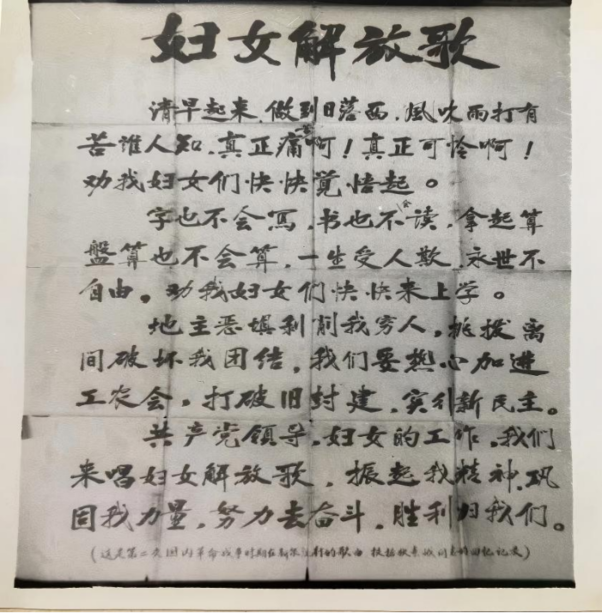 妇女解放歌
清早起来，做到日落西，风吹雨打有
苦谁人知，真正痛苦啊！真正可怜啊！
劝我妇女们快快觉悟起。
字也不会写，书也不会读，拿起算
盘算也不会算，一生受人欺，永世不
自由。劝我妇女们快快来上学。
地主恶霸剥削我穷人，挑拨离
间破坏我团结，我们要热心加进
工农会。打破旧封建，实行新民主。
共产党领导，妇女的工作，我们
来唱妇女解放歌，振起我精神，巩
固我力量，努力去奋斗，胜利归我们。
（这是第二次国内革命战争时期在 的歌曲 根据 同志的回忆记录）